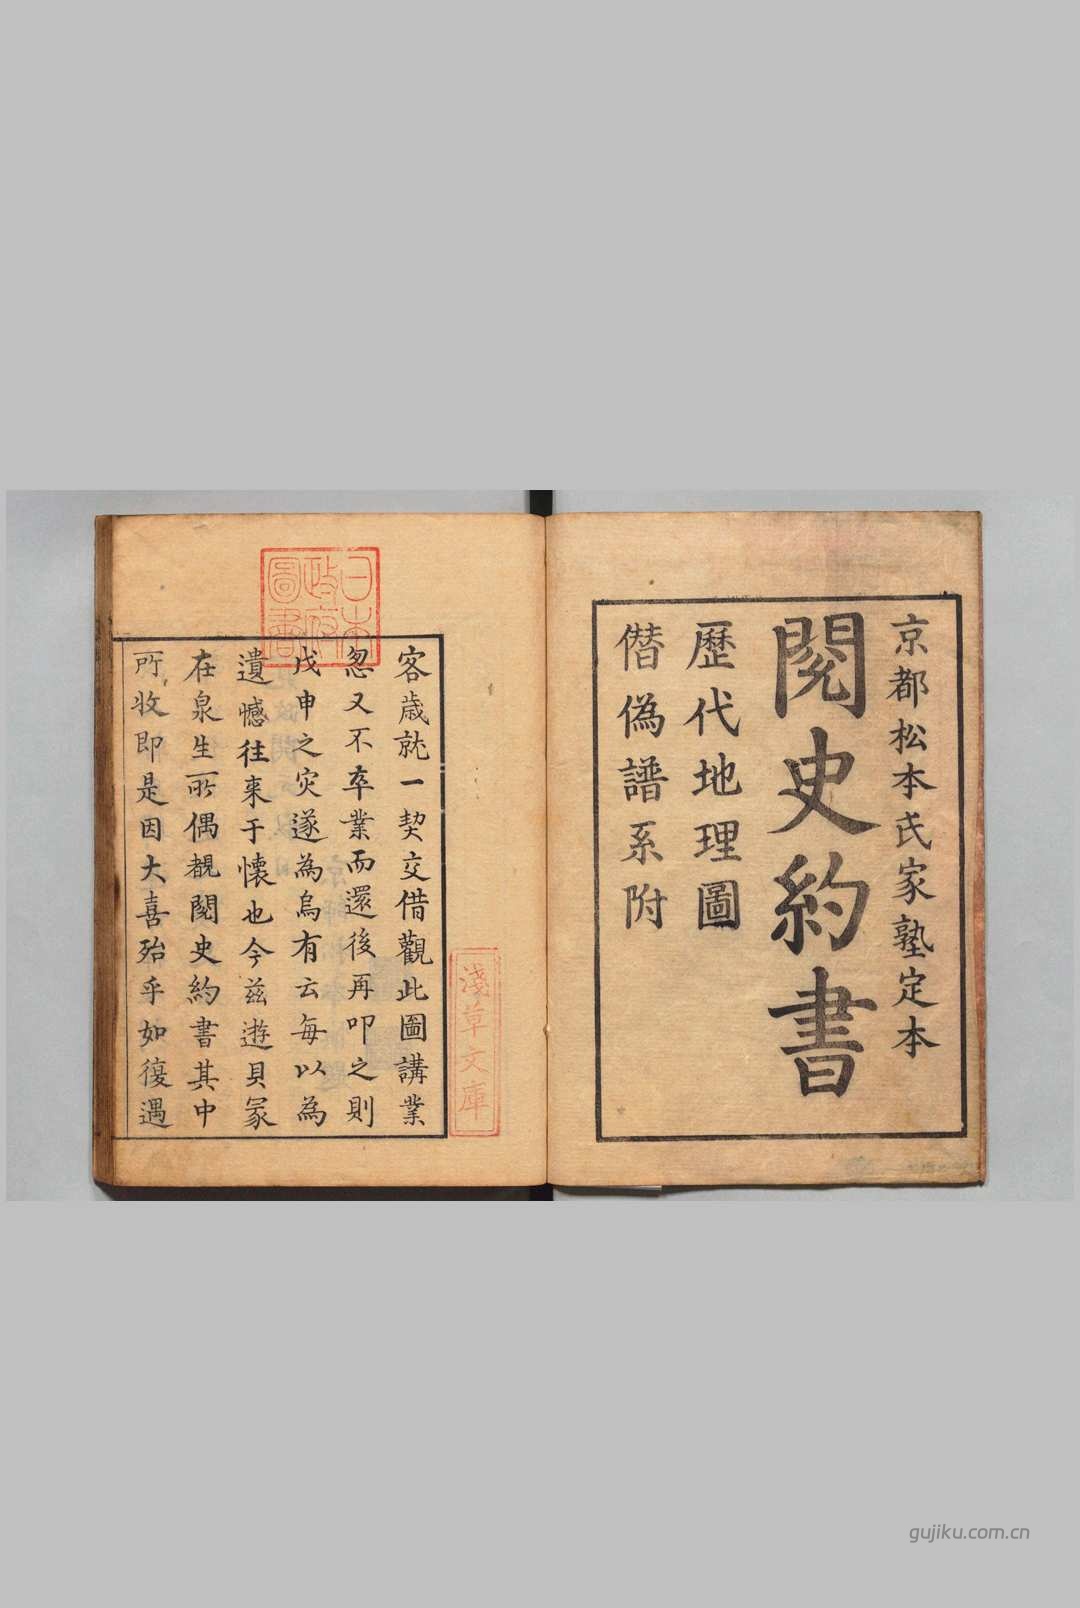 京都松本氏家塾定本
閱史約書
歷代地理圖
僭偽譜系附
日本
政府
圖書
淺草文庫
客歲就一契交借觀此圖講業
忽又不卒業而還後再叩之則
戊申之灾遂為烏有云每以為
遺憾往來于懷也今茲遊貝冢
在泉生所偶覩閱史約書其中
所收即是因大喜殆乎如復遇
gujiku.com.cn